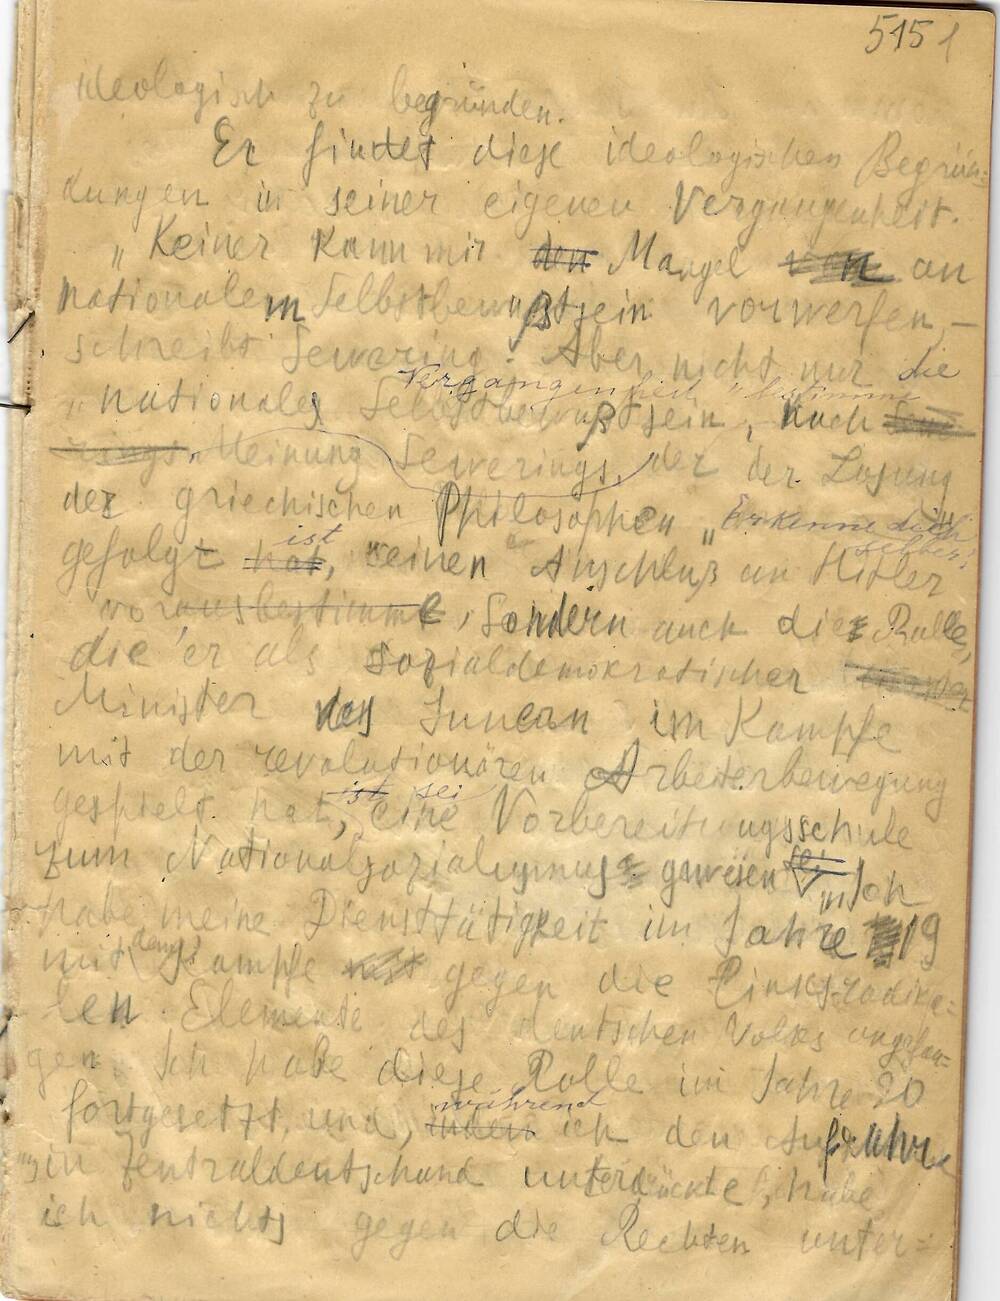 515 1
ideologisch zu begründen.
Er findet diese ideologischen Begrün=
dungen in seiner eigenen Vergangenheit.
„Keiner kann mir den Mangel von an
nationalem Selbstbewußtsein vorwerfen, –
schreibt Severing. Aber nicht nur die
Vergangenheit bestimmt
„nationales Selbstbewußtsein, nach Seve
rings Meinung Severings, der der Losung
der griechischen Philosophen „Erkenne dich
selber"
ist
gefolgt hat, seinen Anschluß an Hitler
vorausbestimmt, sondern auch die Rolle,
die er als sozialdemokratischer
Minister des Innern im Kampfe
mit der revolutionären Arbeiterbewegung
ist sei
gespielt hat, eine Vorbereitungsschule
zum Nationalsozialismus gewesen „Ich
habe meine Diensttätigkeit im Jahre 19
mit dem Kampfe mit gegen die Linksradika=
len Elemente des deutschen Volkes angefan=
gen. Ich habe diese Rolle im Jahre 20
während
fortgesetzt, und, indem ich den Aufruhr
in Zentraldeutschand unterdückte, habe
ich nichts gegen die Rechten unter=